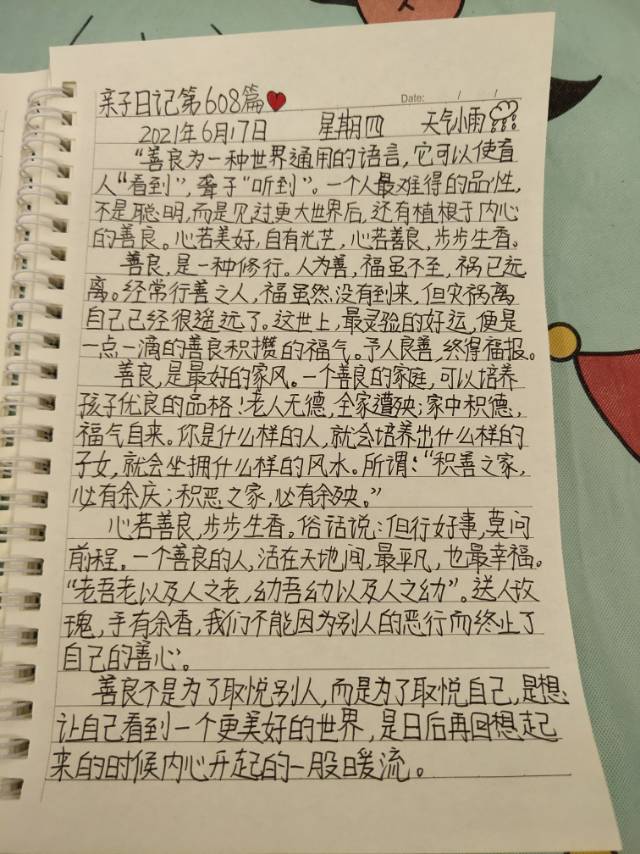 亲子日记第608篇
Date: / /
2021年6月17日 星期四 天气小雨
“善良为一种世界通用的语言,它可以使盲
人“看到”,聋子“听到”。一个人最难得的品性,
不是聪明,而是见过更大世界后,还有植根于内心
的善良。心若美好,自有光芒,心若善良,步步生香。
善良,是一种修行。人为善,福虽不至,祸已远
离。经常行善之人,福虽然没有到来,但灾祸离
自己已经很遥远了。这世上,最灵验的好运,便是
一点一滴的善良积攒的福气。予人良善,终得福报。
善良,是最好的家风。一个善良的家庭,可以培养
孩子优良的品格!老人无德,全家遭殃;家中积德,
福气自来。你是什么样的人,就会培养出什么样的
子女,就会坐拥什么样的风水。所谓:“积善之家,
必有余庆;积恶之家,必有余殃。”
心若善良,步步生香。俗话说:但行好事,莫问
前程。一个善良的人,活在天地间,最平凡,也最幸福。
“老吾老以及人之老,幼吾幼以及人之幼”。送人玫
瑰,手有余香,我们不能因为别人的恶行而终止了
自己的善心。
善良不是为了取悦别人,而是为了取悦自己,是想
让自己看到一个更美好的世界,是日后再回想起
来的时候内心升起的一股暖流。